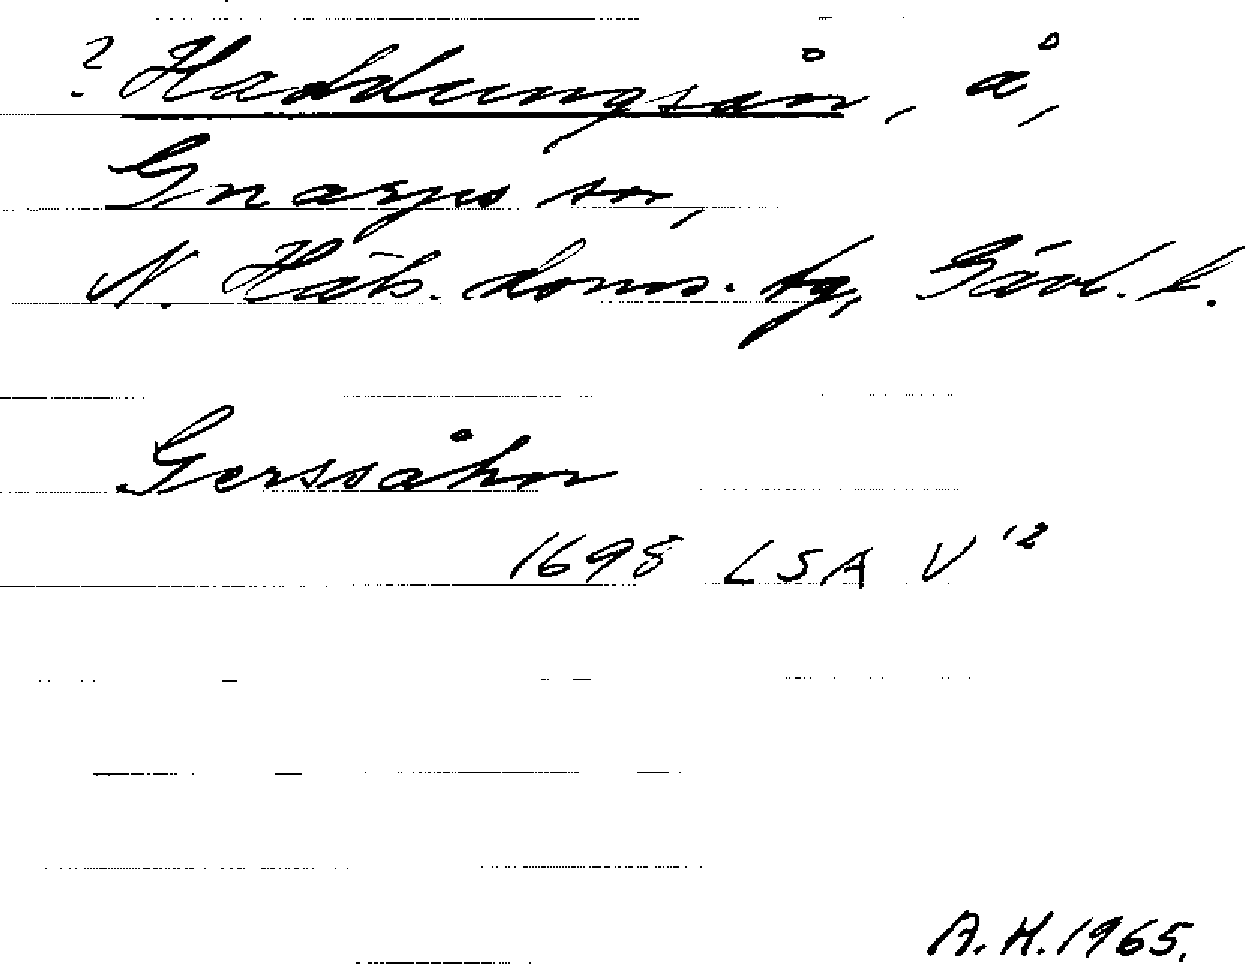 ? Haddungsån, å,
Gnarps sn,
N. Häls. doms. tg, Gävl. l.
Gerssåhn
1698 LSA V 12
A.H. 1965.